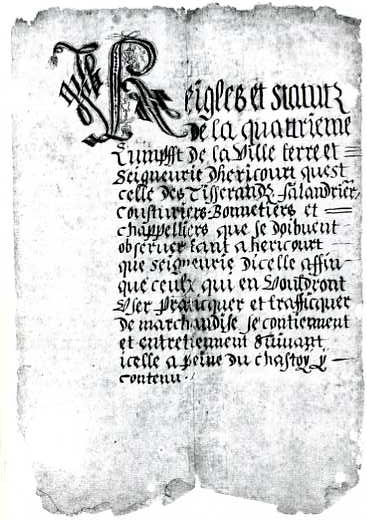 Reigles et statutz
de la quattrieme
Zumfft de la Ville terre et
Seigneurie dhericourt quest
celle des Tisserandz, falandrier,
Cousturiers Bonnetiers et
chappelliers que se doibuent
obseruer tant a hericourt
que seigneurie dicelle affin
que ceulx qui en Vouldront
Vser Practicquer et trafficquer
de marchandise se contiennent
et entretiennent suiuant
icelle a peine du chastoy y
contenu.